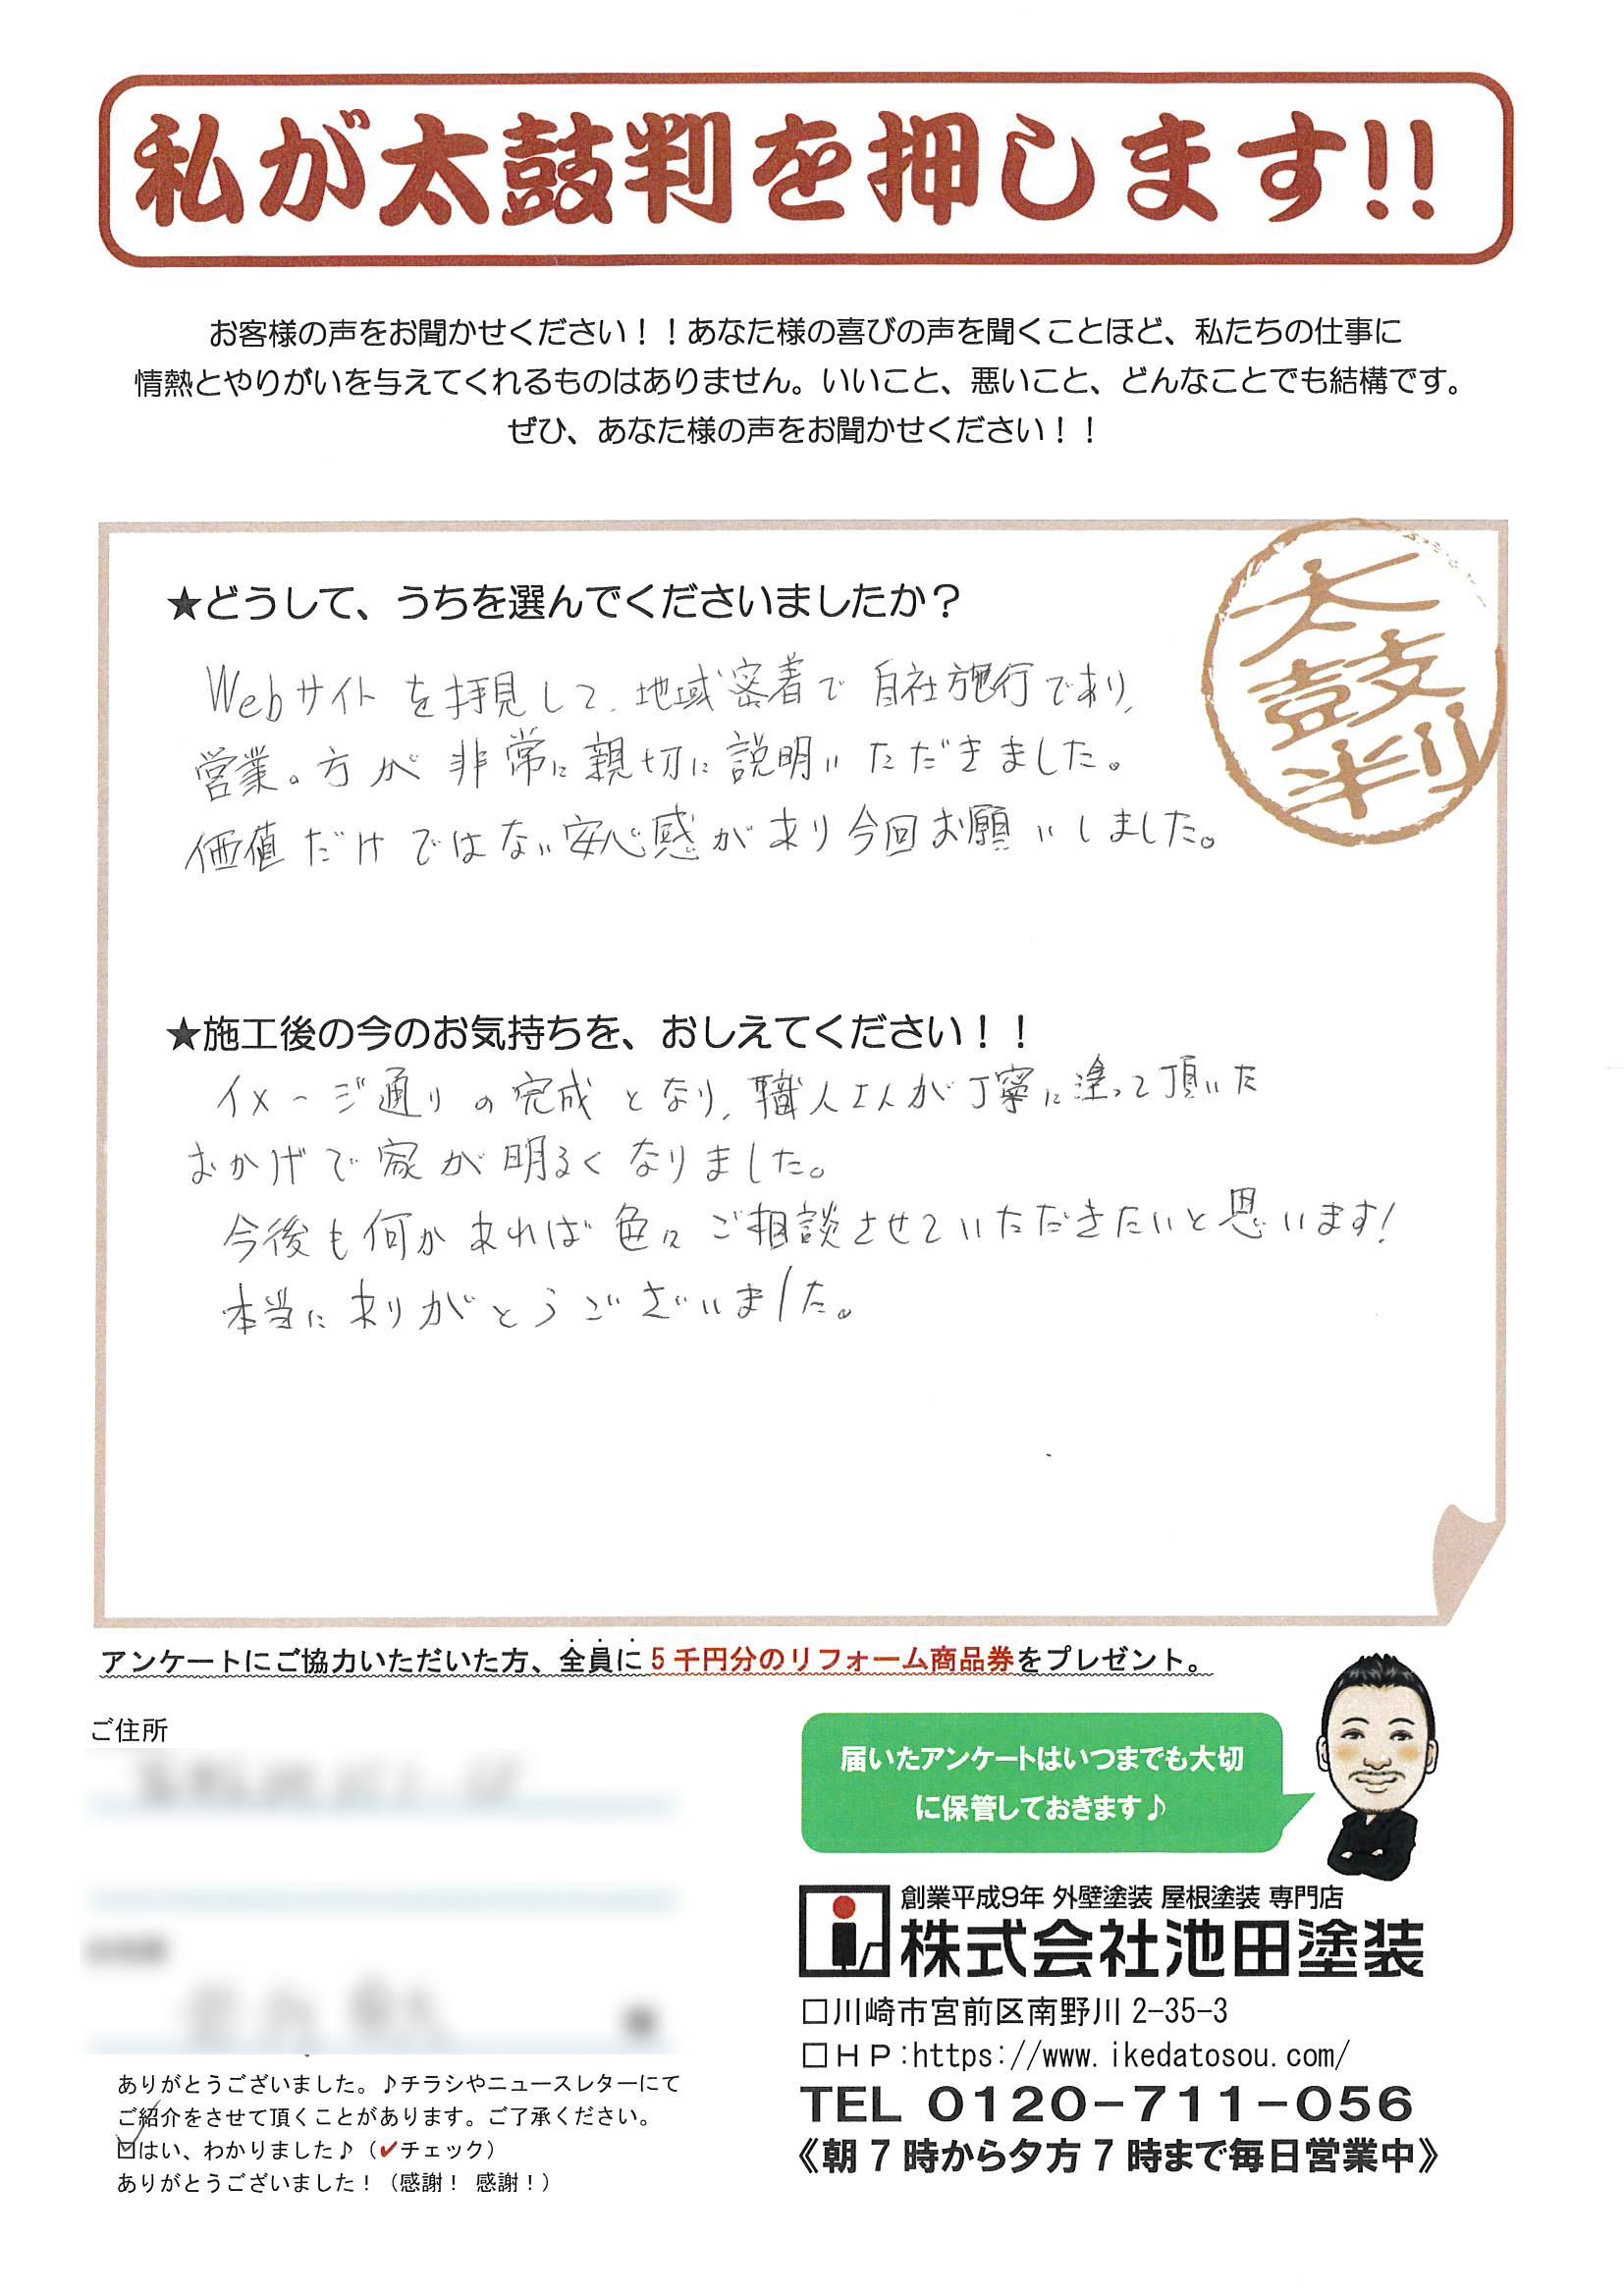 私が太鼓判を押します!!
お客様の声をお聞かせください！！あなた様の喜びの声を聞くことほど、私たちの仕事に
情熱とやりがいを与えてくれるものはありません。いいこと、悪いこと、どんなことでも結構です。
ぜひ、あなた様の声をお聞かせください！！
太鼓判
★どうして、うちを選んでくださいましたか？
Webサイトを拝見して、地域密着で自社施行であり、
営業の方が非常に親切に説明いただきました。
価値だけではない安心感があり今回お願いしました。
★施工後の今のお気持ちを、おしえてください！！
イメージ通りの完成となり、職人さんが丁寧に塗って頂いた
おかげで家が明るくなりました。
今後も何かあれば色々ご相談させていただきたいと思います!
本当にありがとうございました。
アンケートにご協力いただいた方、全員に５千円分のリフォーム商品券をプレゼント。
ご住所
届いたアンケートはいつまでも大切
に保管しておきます♪
創業平成9年 外壁塗装 屋根塗装 専門店
株式会社池田塗装
□川崎市宮前区南野川 2-35-3
□ＨＰ:https://www.ikedatosou.com/
TEL 0120-711-056
《朝７時から夕方７時まで毎日営業中》
ありがとうございました。♪チラシやニュースレターにて
ご紹介をさせて頂くことがあります。ご了承ください。
☑はい、わかりました♪（✔チェック）
ありがとうございました！（感謝！ 感謝！）